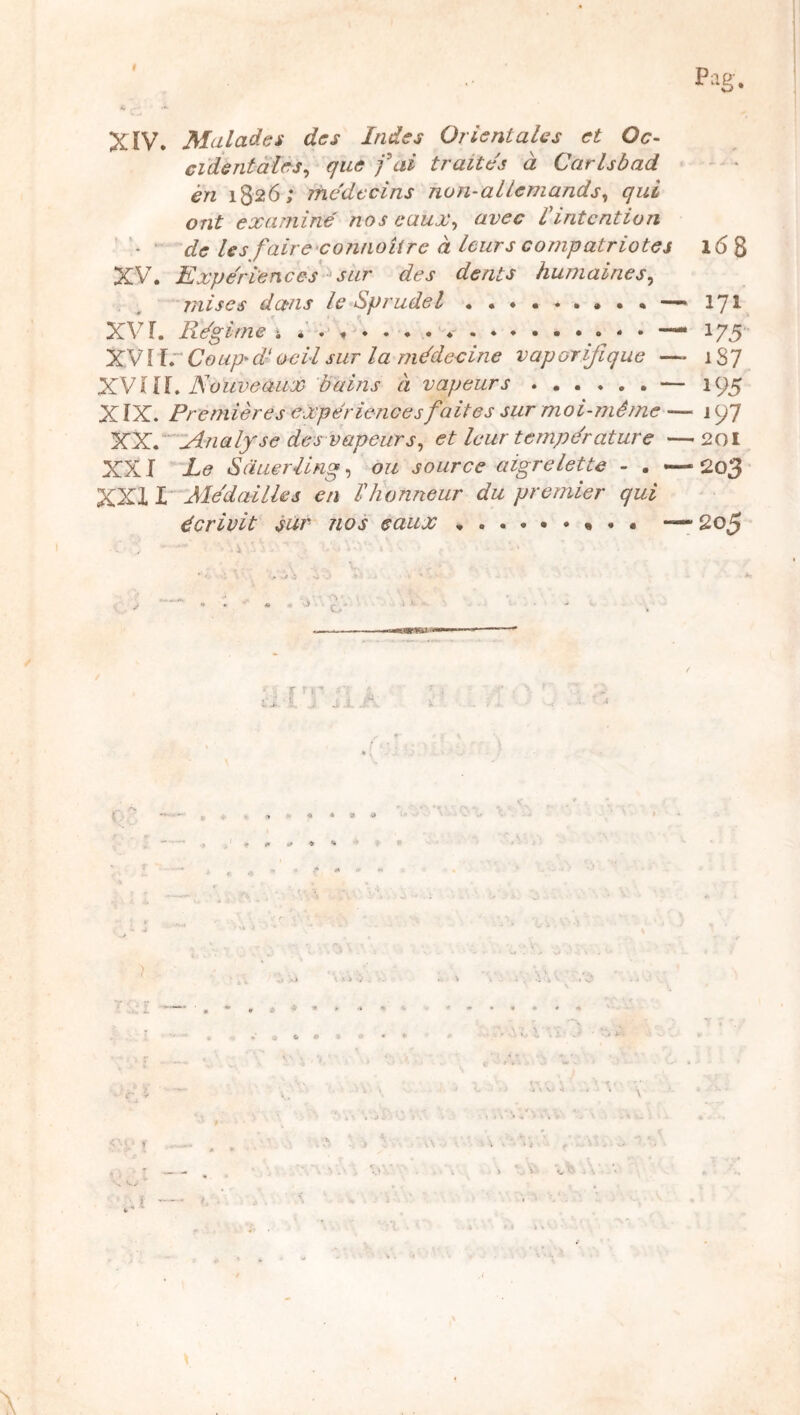 Pag.
XIV. Malades des Indes Orientales et Oc-
cidentales, que j'ai traités à Carlsbad
en 1826; médecins non-allemands, qui
ont examiné nos eaux, avec l'intention
de les faire connoître à leurs compatriotes 168
XV. Expériences sur des dents humaines,
mises dans le Sprudel . . . . . . . . . — 171
XVI. Régime . . . . . . . . . . . . . . . . — 175
XVII. Coup d'oeil sur la médecine vaporifique — 187
XVIII. Nouveaux bains à vapeurs . . . . . . — 195
XIX. Premières expériences faites sur moi-même — 197
XX. Analyse des vapeurs, et leur température — 201
XXI Le Säuerling, ou source aigrelette - . — 203
XXII Médailles en l'honneur du premier qui
écrivit sur nos eaux . . . . . . . . . — 205